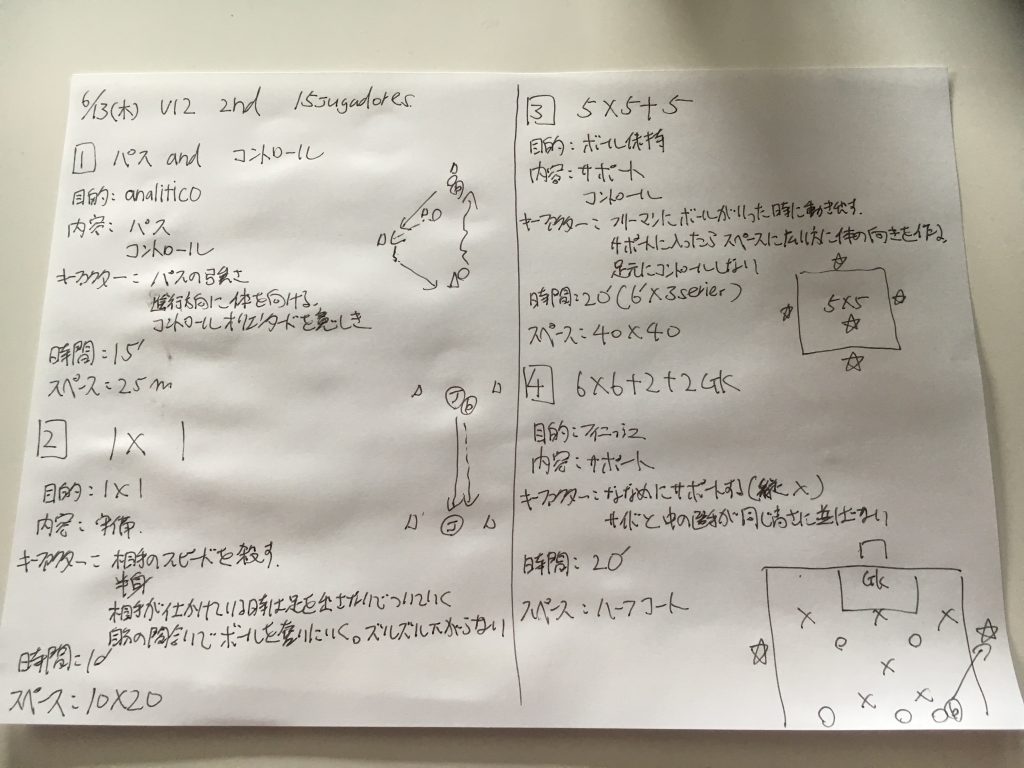 6/13(木) U12 2nd 15jugadores
1 パス and コントロール
目的: analitico
内容: パス
コントロール
キーファクター: パスの強さ
進行方向に体を向ける。
コントロールオリエンタードを
時間: 15'
スペース: 25m
P.O
2 1x1
目的: 1x1
内容: 守備.
キーファクター: 相手のスピードを殺す.
半身
相手が仕かけている時は足を出さないでついていく
自分の間合いでボールを奪いにいく。ズルズル下がらない
時間: 10'
スペース: 10x20
3 5x5+5
目的: ボール保持
内容: サポート
コントロール
キーファクター: フリーマンにボールが入った時に動き出す.
サポートに入ったらスペースに 体の向きを作る
足元にコントロールしない
時間: 20' (6'x3serier)
スペース: 40x40
5x5
4 6x6+2+2GK
目的: フィニッシュ
内容: サポート
キーファクター: ななめにサポートする(縦x)
サイドと中の選手が同じ高さに並ばない
時間: 20'
スペース: ハーフコート
GK